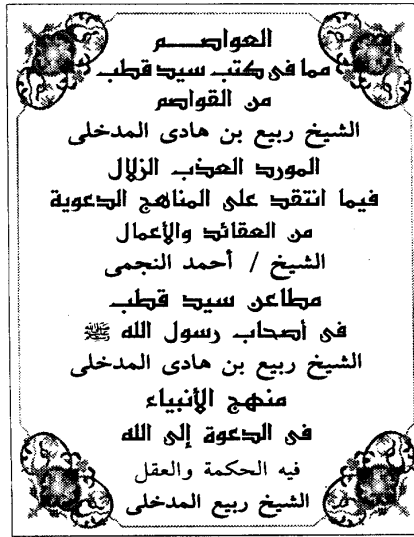 العواصم
مما فى كتب سيد قطب
من القواصم
الشيخ ربيع بن هادى المدخلى
المورد العذب الزلال
فيما انتقد على المناهج الدعوية
من العقائد والأعمال
الشيخ / أحمد النجمى
مطاعن سيد قطب
فى أصحاب رسول الله ﷺ
الشيخ ربيع بن هادى المدخلى
منهج الأنبياء
فى الدعوة إلى الله
فيه الحكمة والعقل
الشيخ ربيع المدخلى